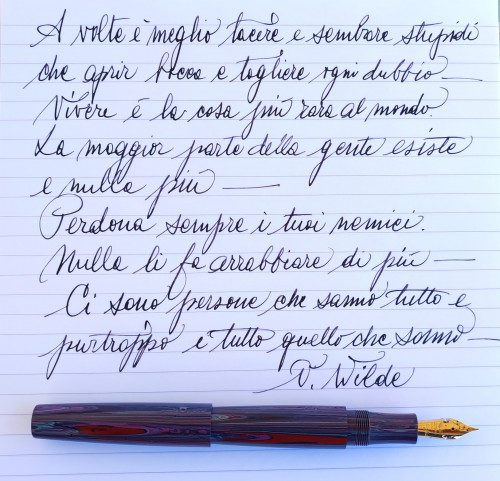 A volte è meglio tacere e sembrare stupidi
che aprir bocca e togliere ogni dubbio —
Vivere è la cosa più rara al mondo.
La maggior parte della gente esiste
e nulla più —
Perdona sempre i tuoi nemici.
Nulla li fa arrabbiare di più —
Ci sono persone che sanno tutto e
purtroppo è tutto quello che sanno —
O. Wilde